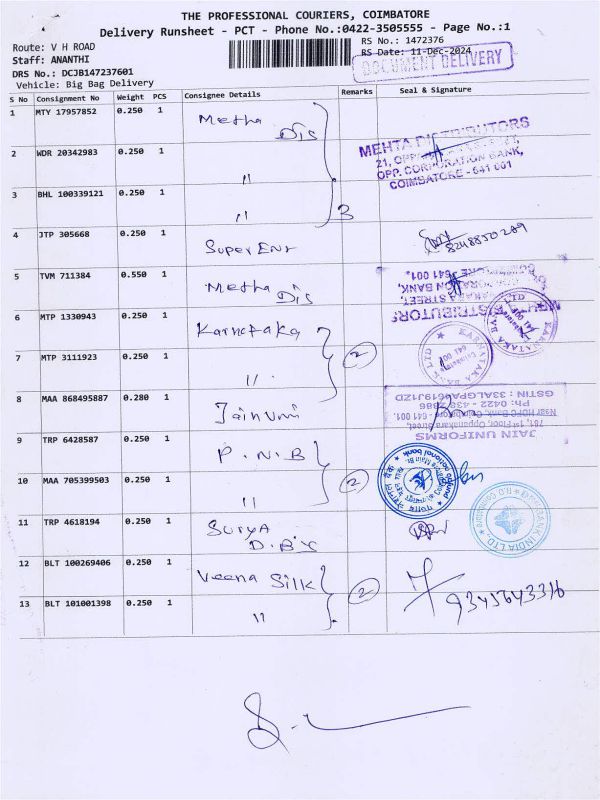 THE PROFESSIONAL COURIERS, COIMBATORE
Delivery Runsheet - PCT - Phone No.:0422-3505555 - Page No.:1
Route: V H ROAD
RS No.: 1472376
Staff: ANANTHI
RS Date: 11-Dec-2024
DOCUMENT DELIVERY
DRS No.: DCJB147237601
Vehicle: Big Bag Delivery
S No Consignment No Weight PCS Consignee Details Remarks Seal & Signature
1 MTY 17957852 0.250 1 Metha Dis
MEHTA DISTRIBUTORS
21, OPP.
OPP. CORPORATION BANK,
COIMBATORE - 641 001
2 WDR 20342983 0.250 1 "
3 BHL 100339121 0.250 1 " 3
4 JTP 305668 0.250 1 Super Enr 8248850289
5 TVM 711384 0.550 1 Metha Dis
6 MTP 1330943 0.250 1 Karnataka
7 MTP 3111923 0.250 1 " 2
KARNATAKA BANK LTD
8 MAA 868495887 0.280 1 Jain Uni
JAIN UNIFORMS
781, 1st Floor, Oppanakara Street,
Near HDFC Bank, Coimbatore - 641 001.
9 TRP 6428587 0.250 1 P.N.B
10 MAA 705399503 0.250 1 " 2
punjab national bank
11 TRP 4618194 0.250 1 Surya
12 BLT 100269406 0.250 1 Veena Silk
13 BLT 101001398 0.250 1 " 2 9345643316